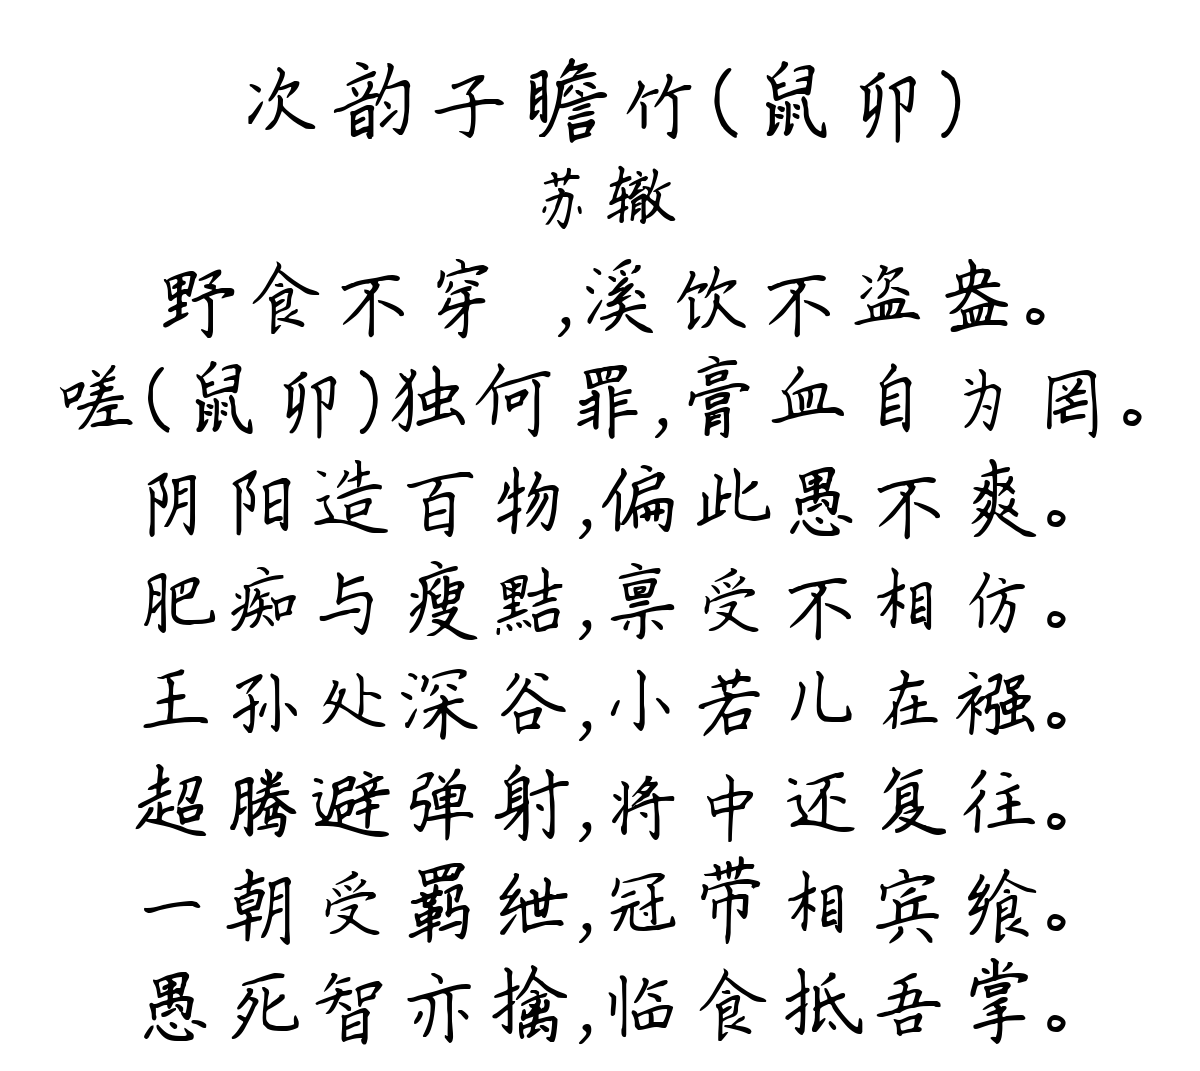 次韵子瞻竹(鼠卯)
苏辙
野食不穿 ,溪饮不盗盎。
嗟(鼠卯)独何罪,膏血自为罔。
阴阳造百物,偏此愚不爽。
肥痴与瘦黠,禀受不相仿。
王孙处深谷,小若儿在襁。
超腾避弹射,将中还复往。
一朝受羁绁,冠带相宾飨。
愚死智亦擒,临食抵吾掌。